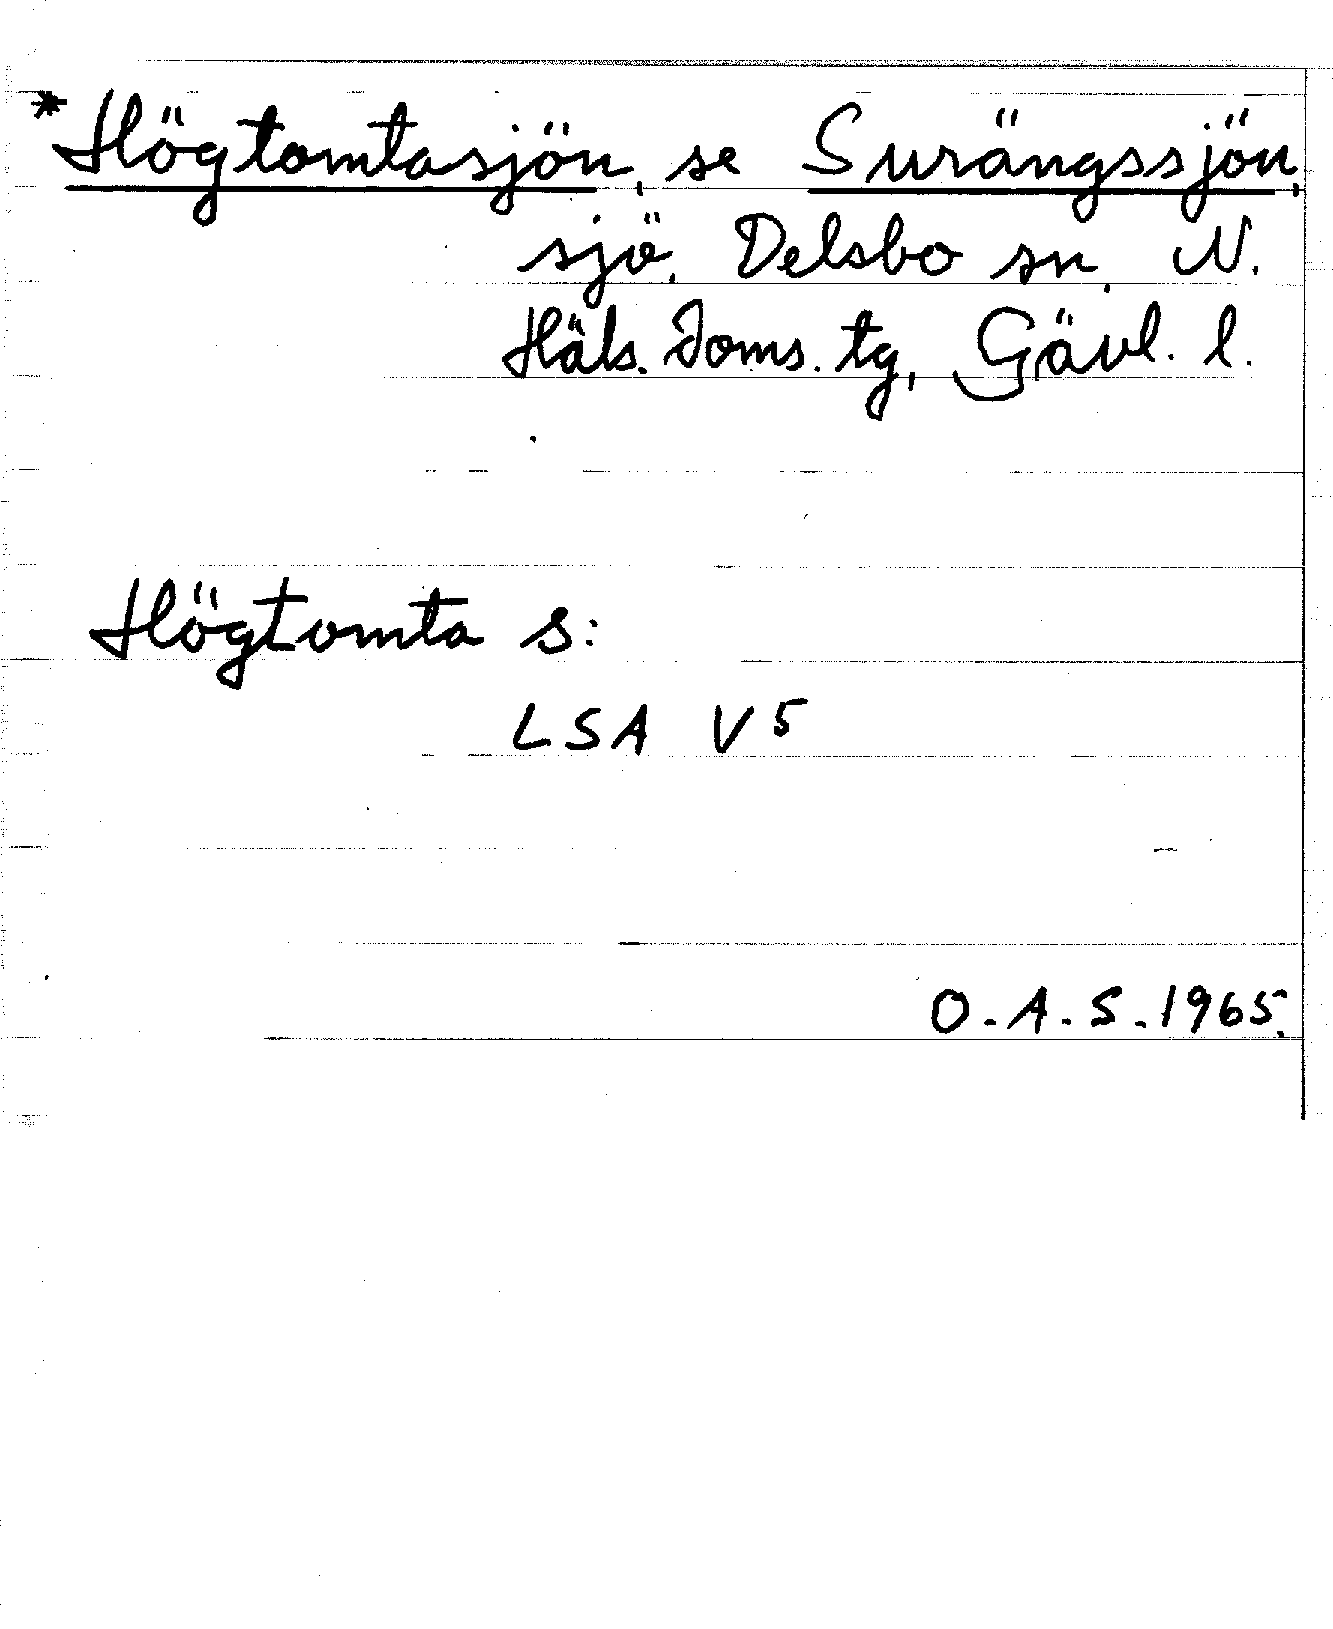 *Högtomtasjön, se Surängssjön,
sjö, Delsbo sn, N.
Häls. Doms. tg, Gävl. l.
Högtomta s:
LSA V5
O.A.S. 1965.